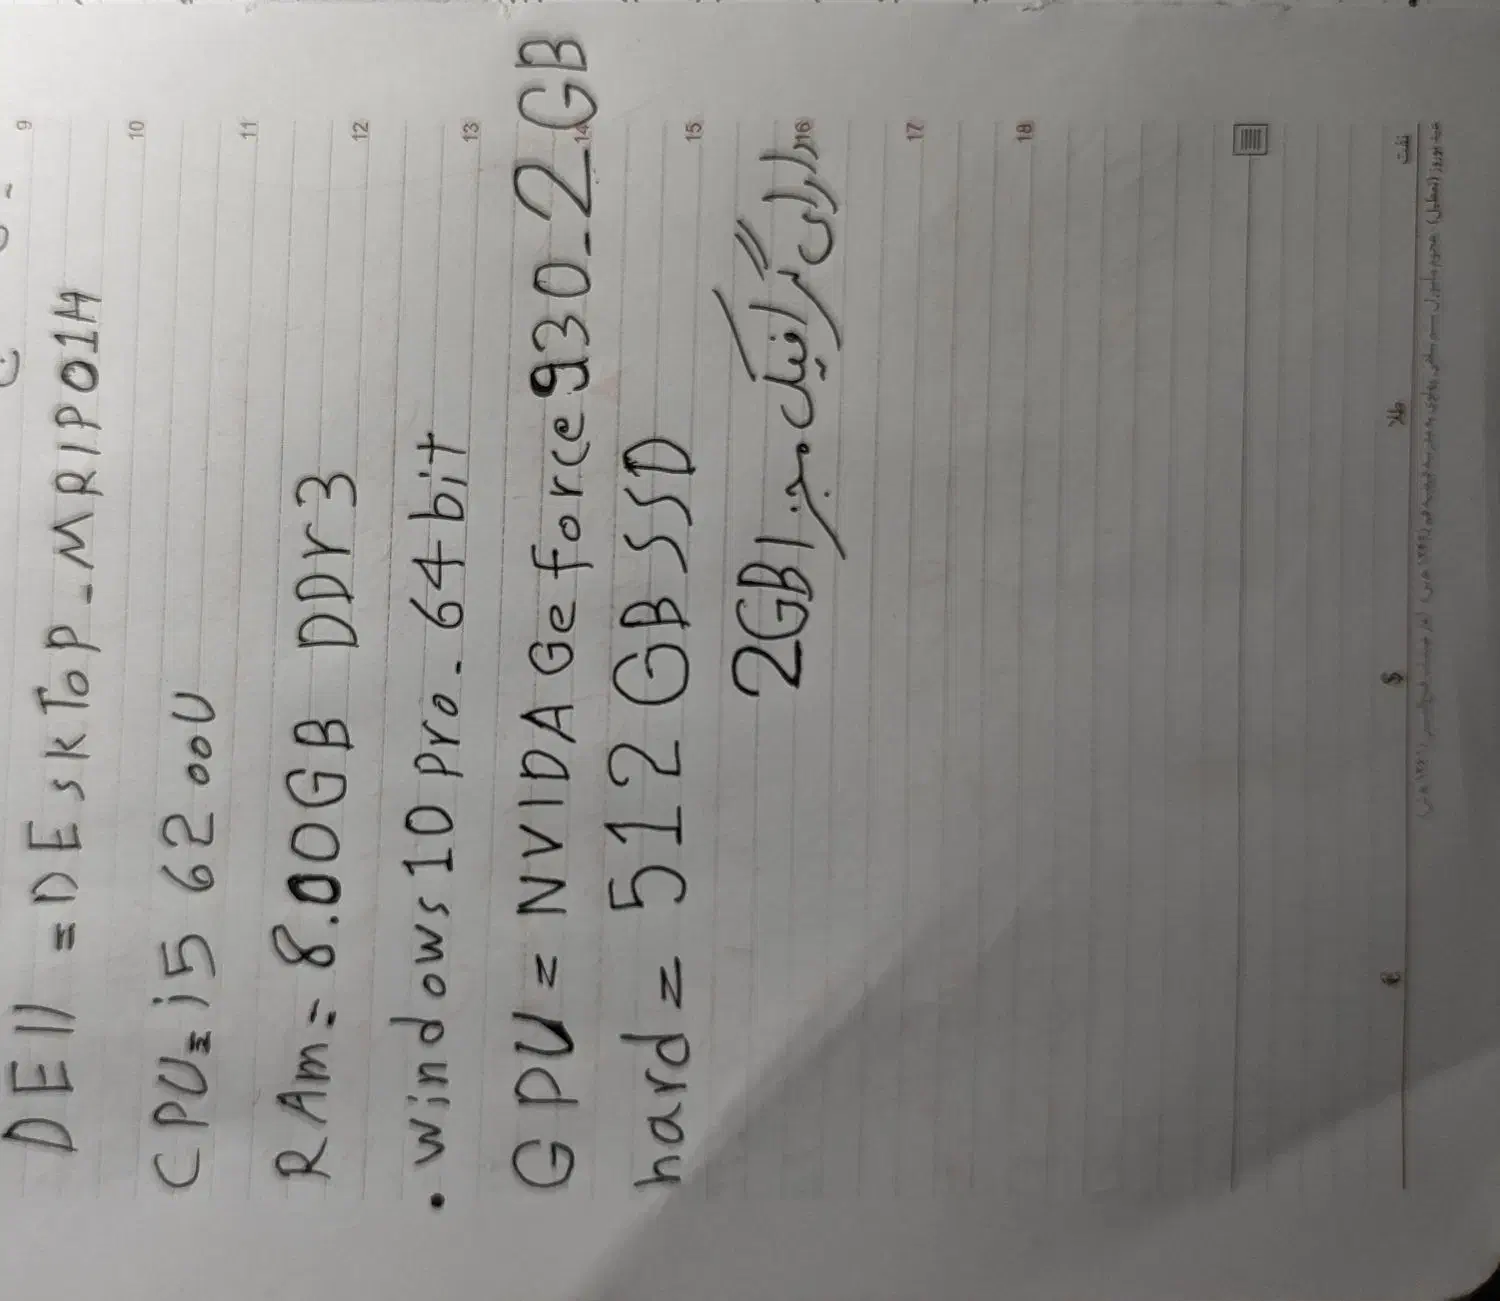 DEll = DEskToP_MRIP01H
9
CPU = i5 6200U
10
11
RAm = 8.00GB DDr3
12
• windows 10 pro_64 bit
13
GPU = NVIDA GeForce 930_2_GB
14
hard = 512 GB SSD
15
دارای گرافیک مجزا 2GB
16
17
18
€ $ طلا نفت